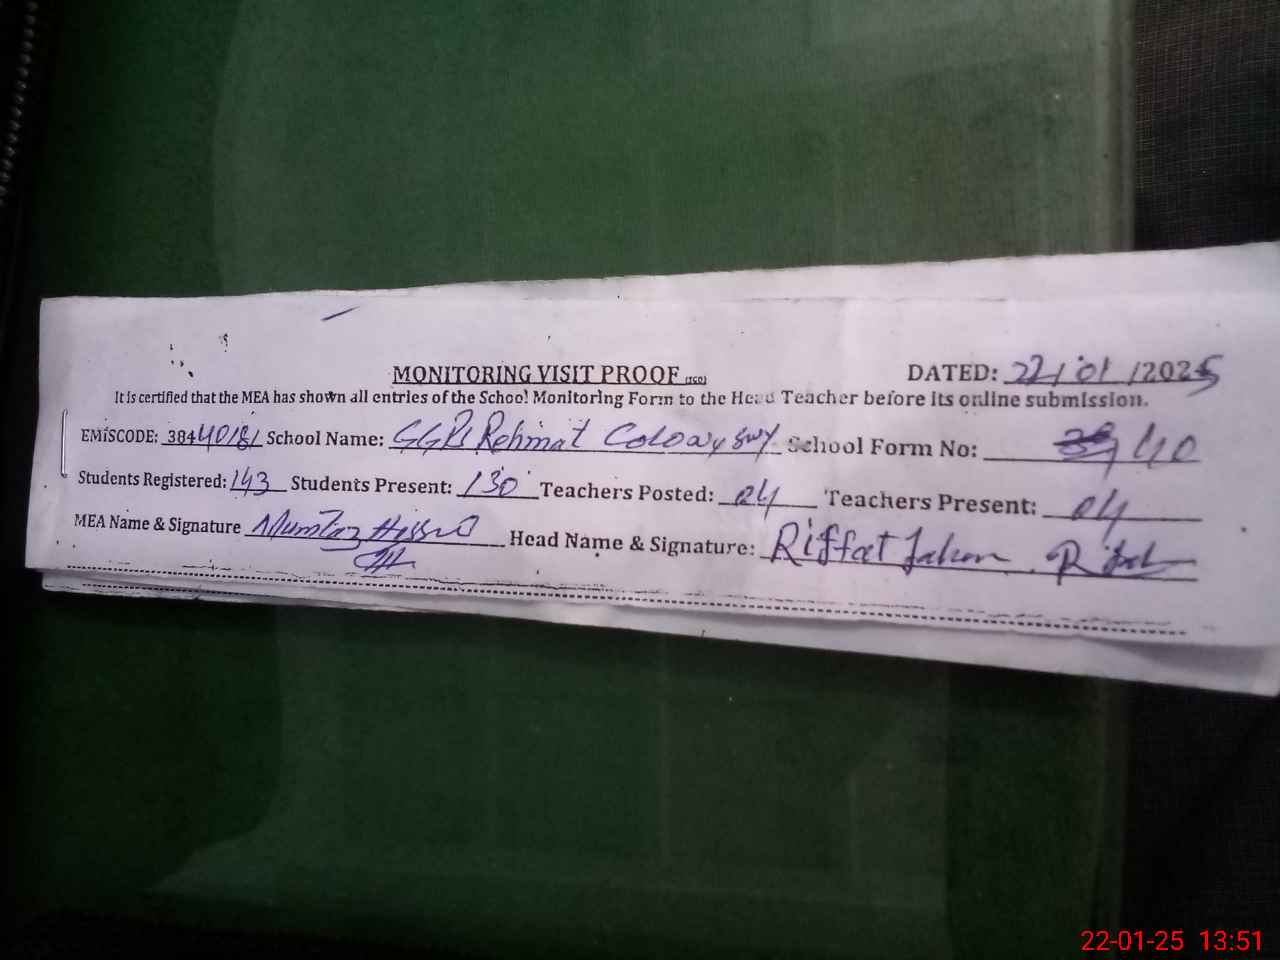 MONITORING VISIT PROOF
DATED: 22/01/2025
It is certified that the MEA has shown all entries of the School Monitoring Form to the Head Teacher before its online submission.
EMISCODE: 38440181 School Name: GGPS Rehmat Colony School Form No: 40
Students Registered: 143 Students Present: 130 Teachers Posted: 04 Teachers Present: 04
MEA Name & Signature Mumtaz Head Name & Signature: Riffat
22-01-25 13:51